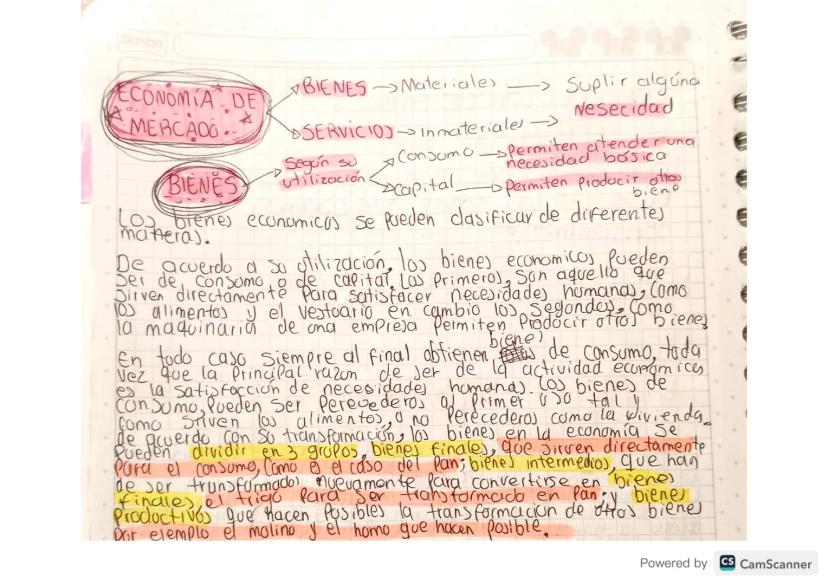 Scribe
ECONOMÍA DE MERCADO.
BIENES → Materiales → Suplir alguna Nesecidad
SERVICIOS → inmateriales →
BIENES
Según su utilización
Consumo → Permiten atender una necesidad básica
Capital → Permiten producir otros biene
Los bienes economicos se pueden clasificar de diferentes
maneras.
De acuerdo a su utilización, los bienes economicos pueden
ser de consumo o de capital, los primeros, son aquello que
sirven directamente para satisfacer necesidades humanas, como
los alimentos y el vestuario en cambio los segundos, como
la maquinaria de una empresa permiten producir otros bienes
En todo caso siempre al final obtienen bienes de consumo, toda
vez que la principal razon de ser de la actividad económica
es la satisfacción de necesidades humanas. los bienes de
consumo, pueden ser perecederos al primer uso tal y
como sirven los alimentos, o no perecederos como la vivienda.
de acuerdo con su transformación, los bienes en la economía se
pueden dividir en 3 grupos, bienes finales, que sirven directamente
para el consumo, como es el caso del pan; bienes intermedios, que han
de ser transformados nuevamente para convertirse en bienes
finales, el trigo para ser transformado en pan; y bienes
productivos que hacen posibles la transformación de otros bienes
por ejemplo el molino y el horno que hacen posible.
Powered by CS CamScanner